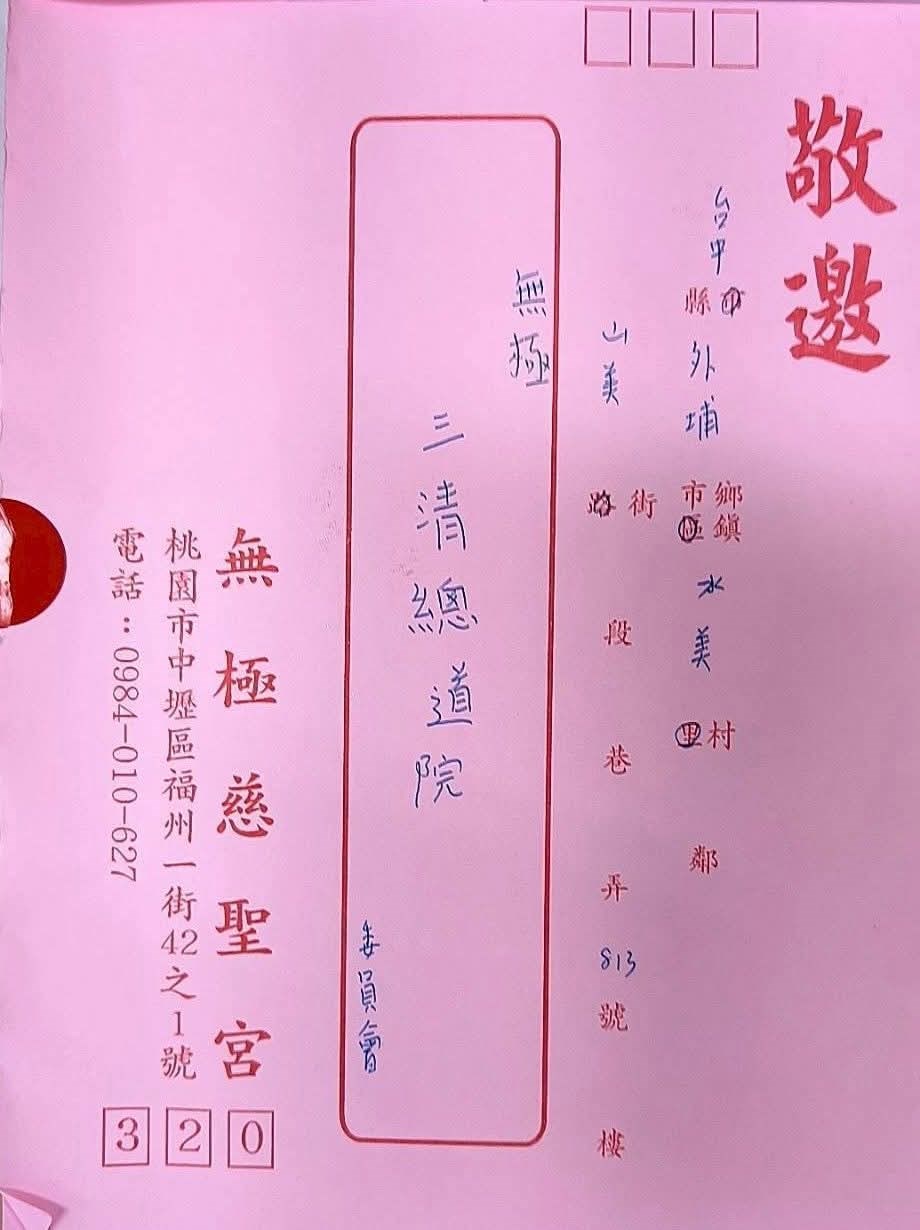 敬邀
台中縣市外埔鄉鎮市區水美村里鄰
山美街路段巷弄813號樓
無極
三清總道院
委員會
無極慈聖宮
桃園市中壢區福州一街42之1號
電話：0984-010-627
320